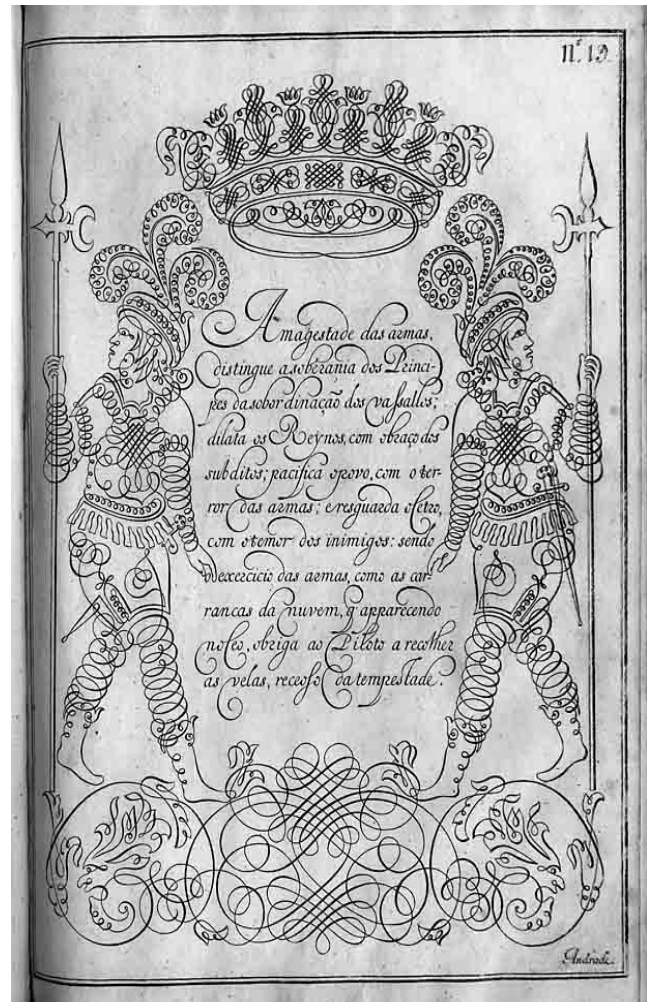 N.º 19.
A magestade das armas,
distingue a soberania dos Princi-
pes da sobordinação dos vassallos;
dilata os Reynos, com obraço dos
subditos; pacifica opovo, com o ter-
ror das armas; e resguarda oсetro,
com otemor dos inimigos: sendo
oexercicio das armas, como as car-
rancas da nuvem, q̃ apparecendo
noCeo, obriga ao Piloto a recolher
as velas, receoso da tempestade.
Andrade.